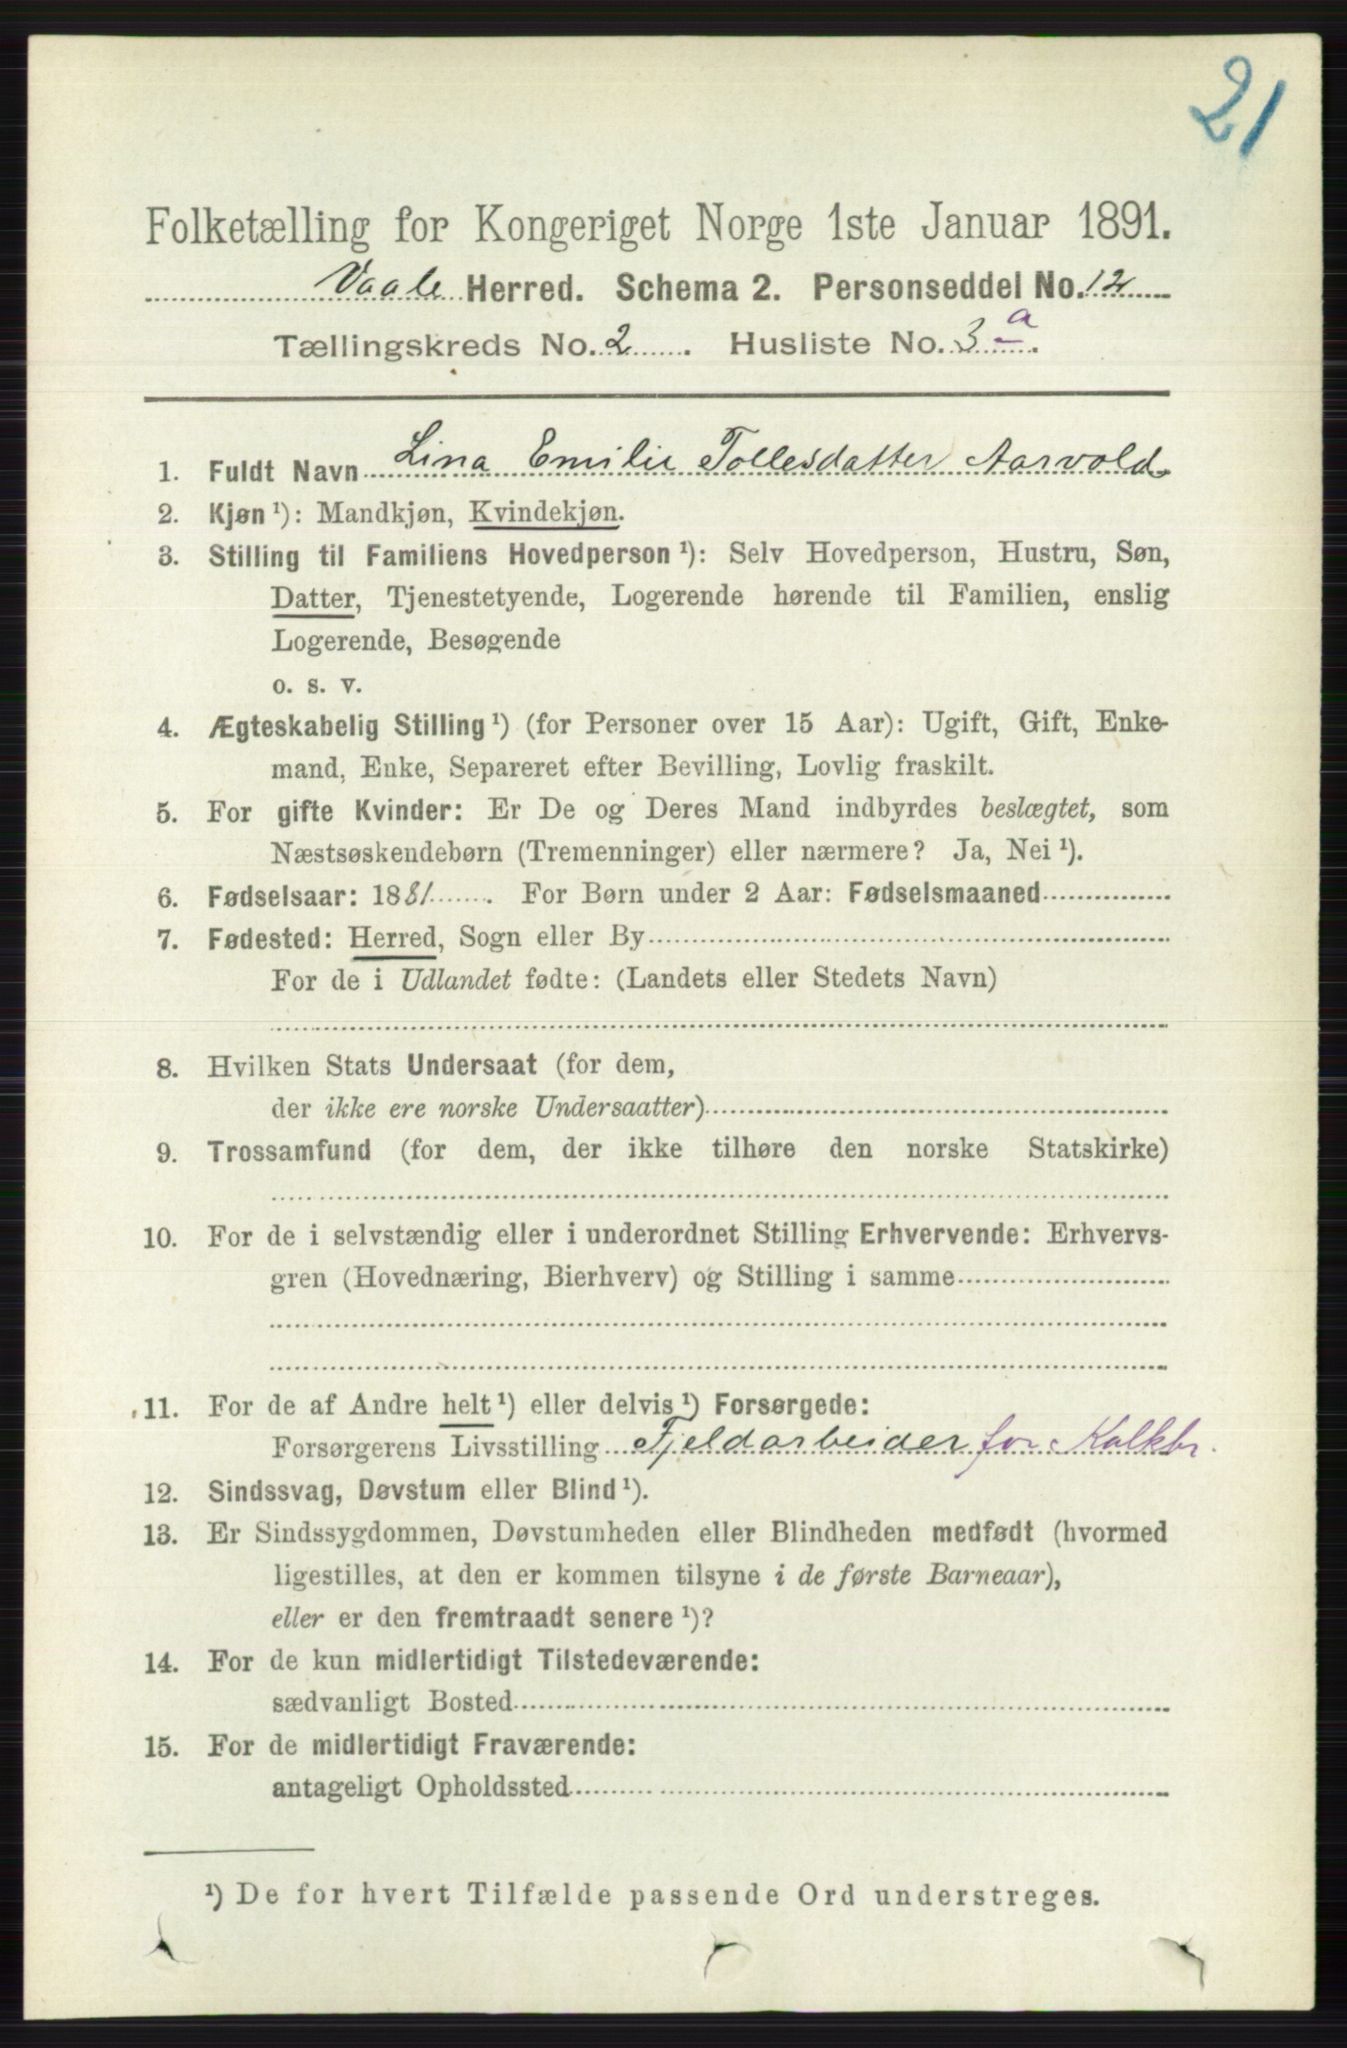 21
Folketælling for Kongeriget Norge 1ste Januar 1891.
Vaale Herred. Schema 2. Personseddel No. 12
Tællingskreds No. 2. Husliste No. 3 a.
1. Fuldt Navn Lina Emilie Tollesdatter Aarvold
2. Kjøn ¹): Mandkjøn, Kvindekjøn.
3. Stilling til Familiens Hovedperson ¹): Selv Hovedperson, Hustru, Søn,
Datter, Tjenestetyende, Logerende hørende til Familien, enslig
Logerende, Besøgende
o. s. v.
4. Ægteskabelig Stilling ¹) (for Personer over 15 Aar): Ugift, Gift, Enke-
mand, Enke, Separeret efter Bevilling, Lovlig fraskilt.
5. For gifte Kvinder: Er De og Deres Mand indbyrdes beslægtet, som
Næstsøskendebørn (Tremenninger) eller nærmere? Ja, Nei ¹).
6. Fødselsaar: 1881. For Børn under 2 Aar: Fødselsmaaned
7. Fødested: Herred, Sogn eller By
For de i Udlandet fødte: (Landets eller Stedets Navn)
8. Hvilken Stats Undersaat (for dem,
der ikke ere norske Undersaatter)
9. Trossamfund (for dem, der ikke tilhøre den norske Statskirke)
10. For de i selvstændig eller i underordnet Stilling Erhvervende: Erhvervs-
gren (Hovednæring, Bierhverv) og Stilling i samme
11. For de af Andre helt ¹) eller delvis ¹) Forsørgede:
Forsørgerens Livsstilling Fjeldarbeider for Kalkbr.
12. Sindssvag, Døvstum eller Blind ¹).
13. Er Sindssygdommen, Døvstumheden eller Blindheden medfødt (hvormed
ligestilles, at den er kommen tilsyne i de første Barneaar),
eller er den fremtraadt senere ¹)?
14. For de kun midlertidigt Tilstedeværende:
sædvanligt Bosted
15. For de midlertidigt Fraværende:
antageligt Opholdssted
¹) De for hvert Tilfælde passende Ord understreges.